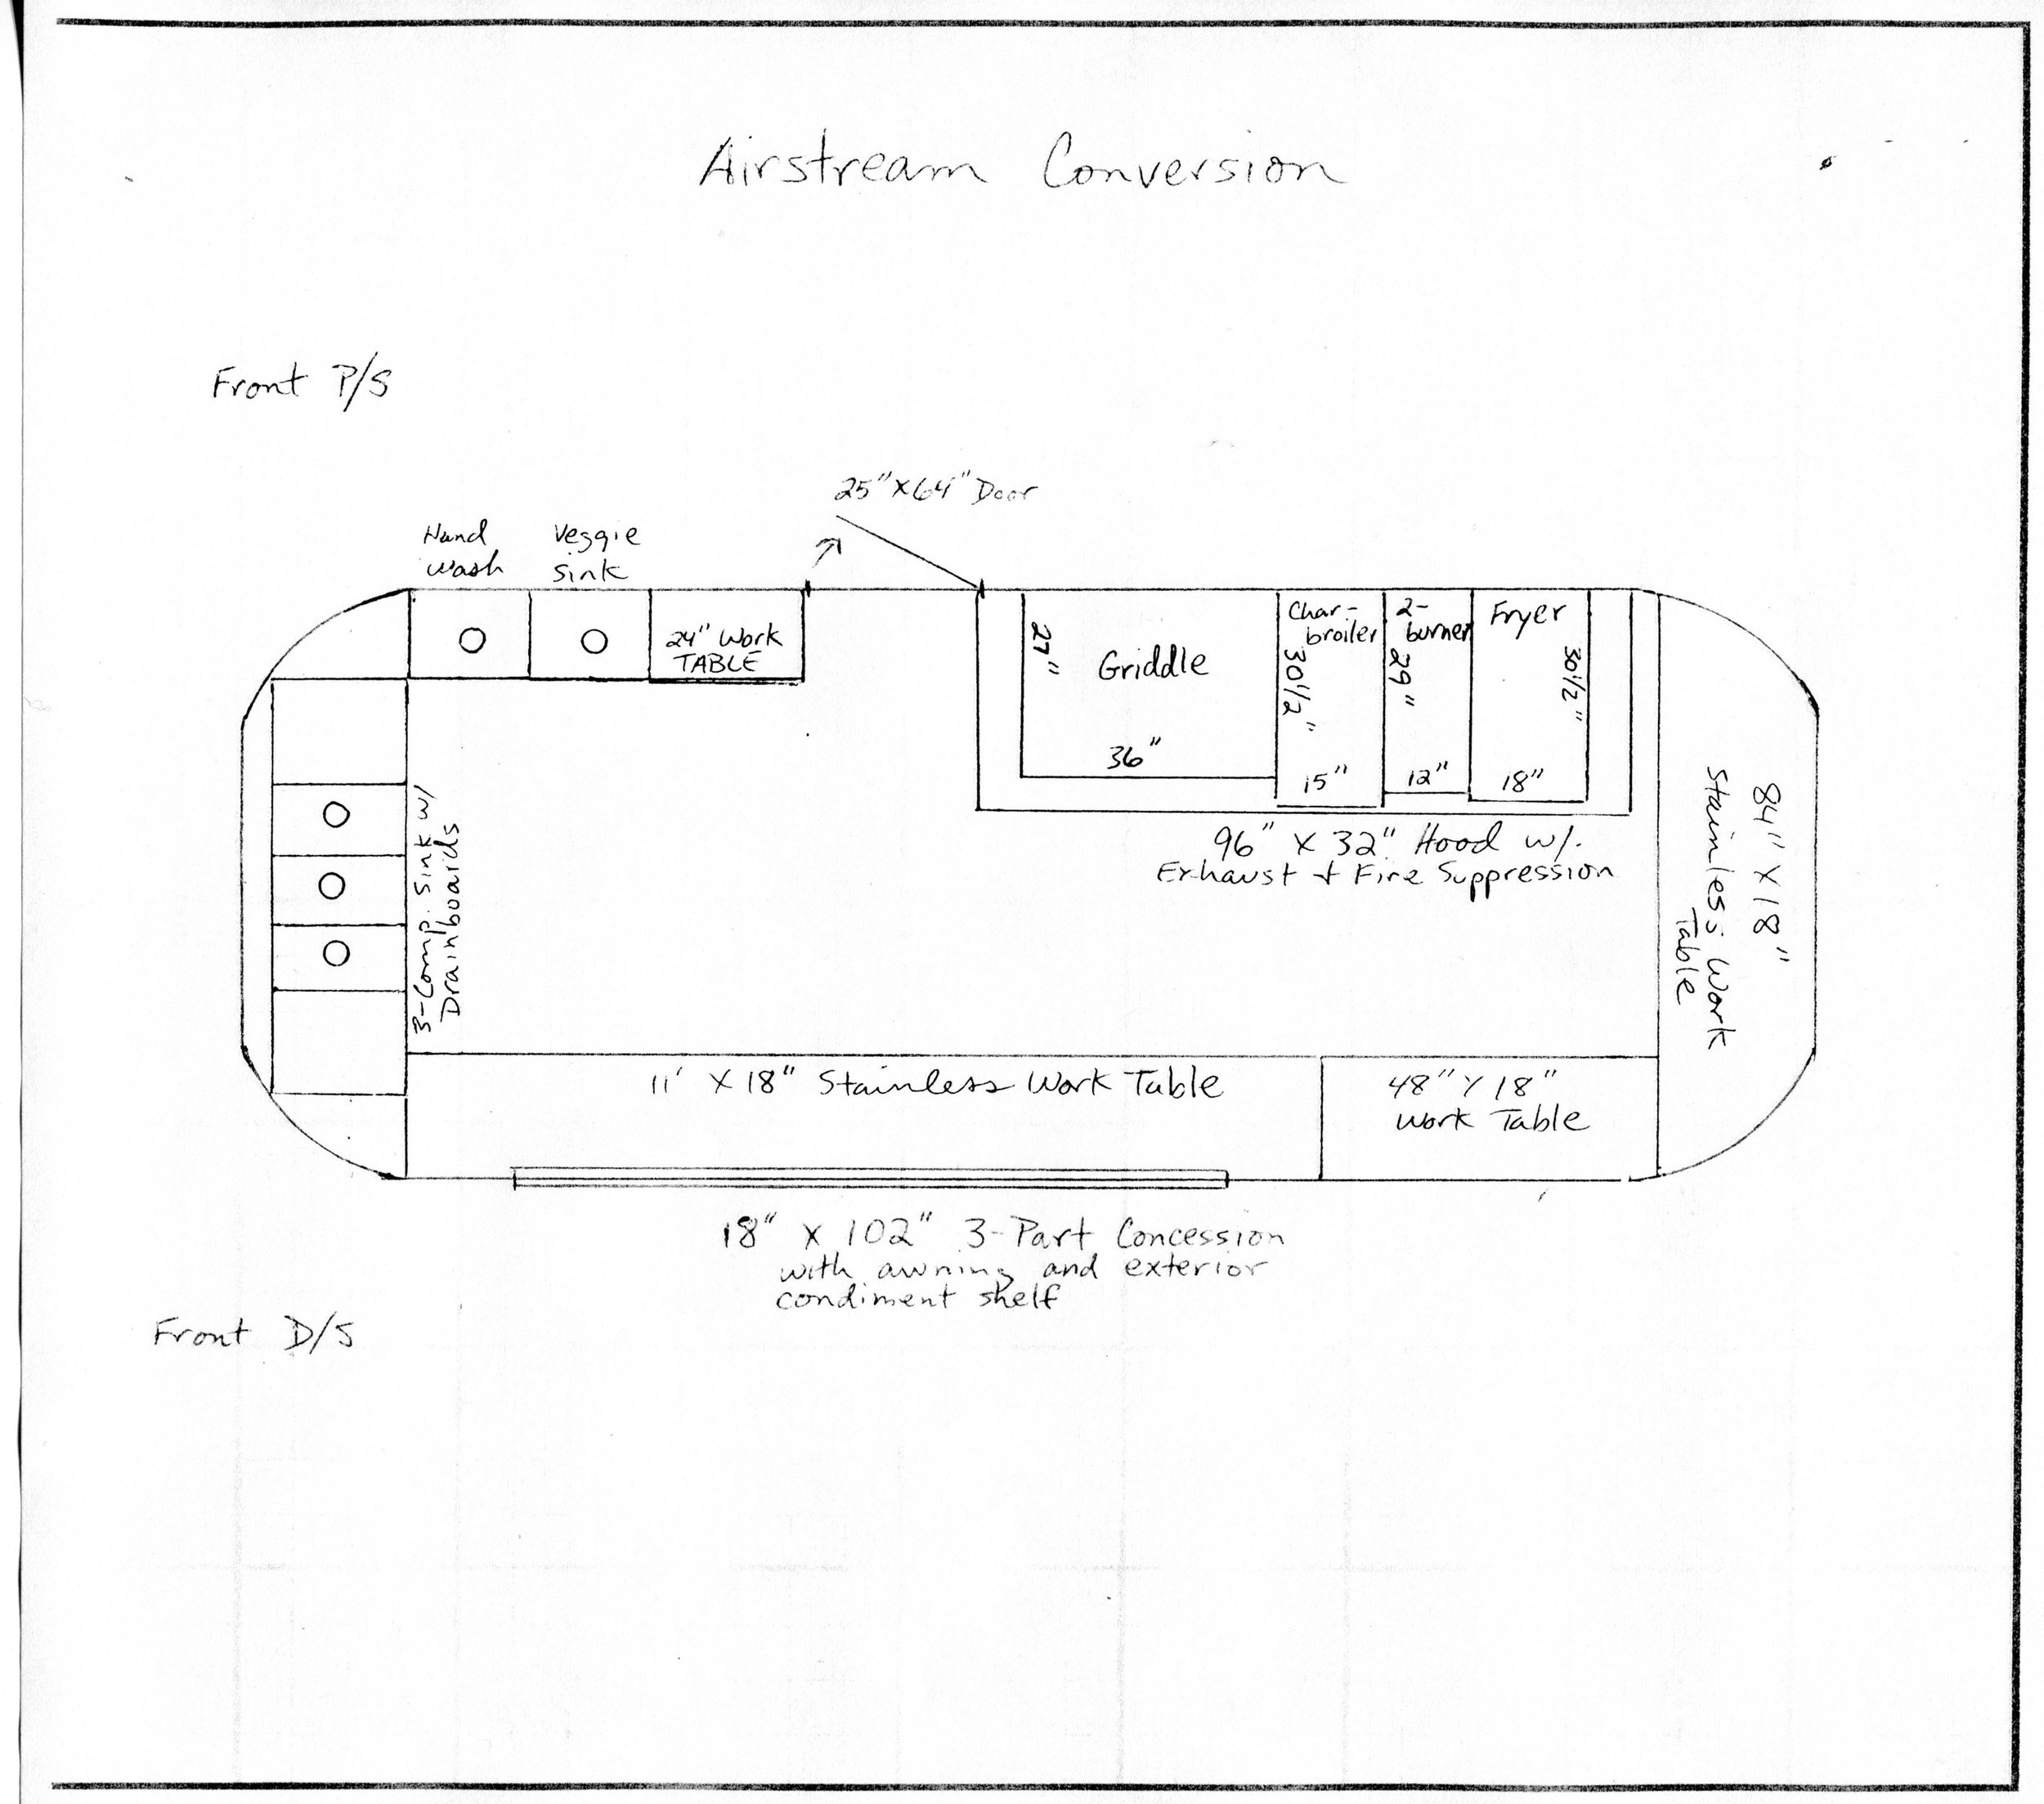 Airstream Conversion
Front P/S
25" X 64" Door
Hand
wash
Veggie
sink
24" Work
TABLE
27"
Griddle
36"
Char-
broiler
30 1/2"
15"
2-
burner
29"
12"
Fryer
30 1/2"
18"
96" X 32" Hood w/.
Exhaust & Fire Suppression
3-Comp. Sink w/
Drainboards
84" X 18"
Stainless Work
Table
11' X 18" Stainless Work Table
48" X 18"
Work Table
18" X 102" 3-Part Concession
with awning and exterior
condiment shelf
Front D/S